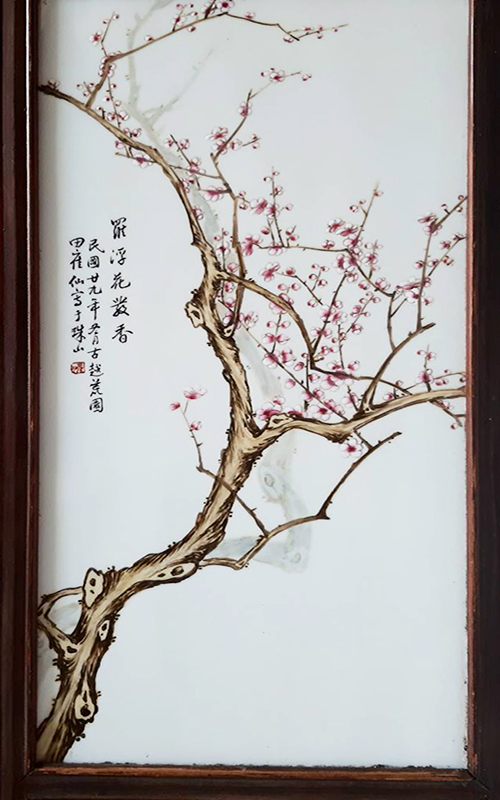 罷浮花發香
民國廿九年冬月古越荒園
田崔仙寫于珠山